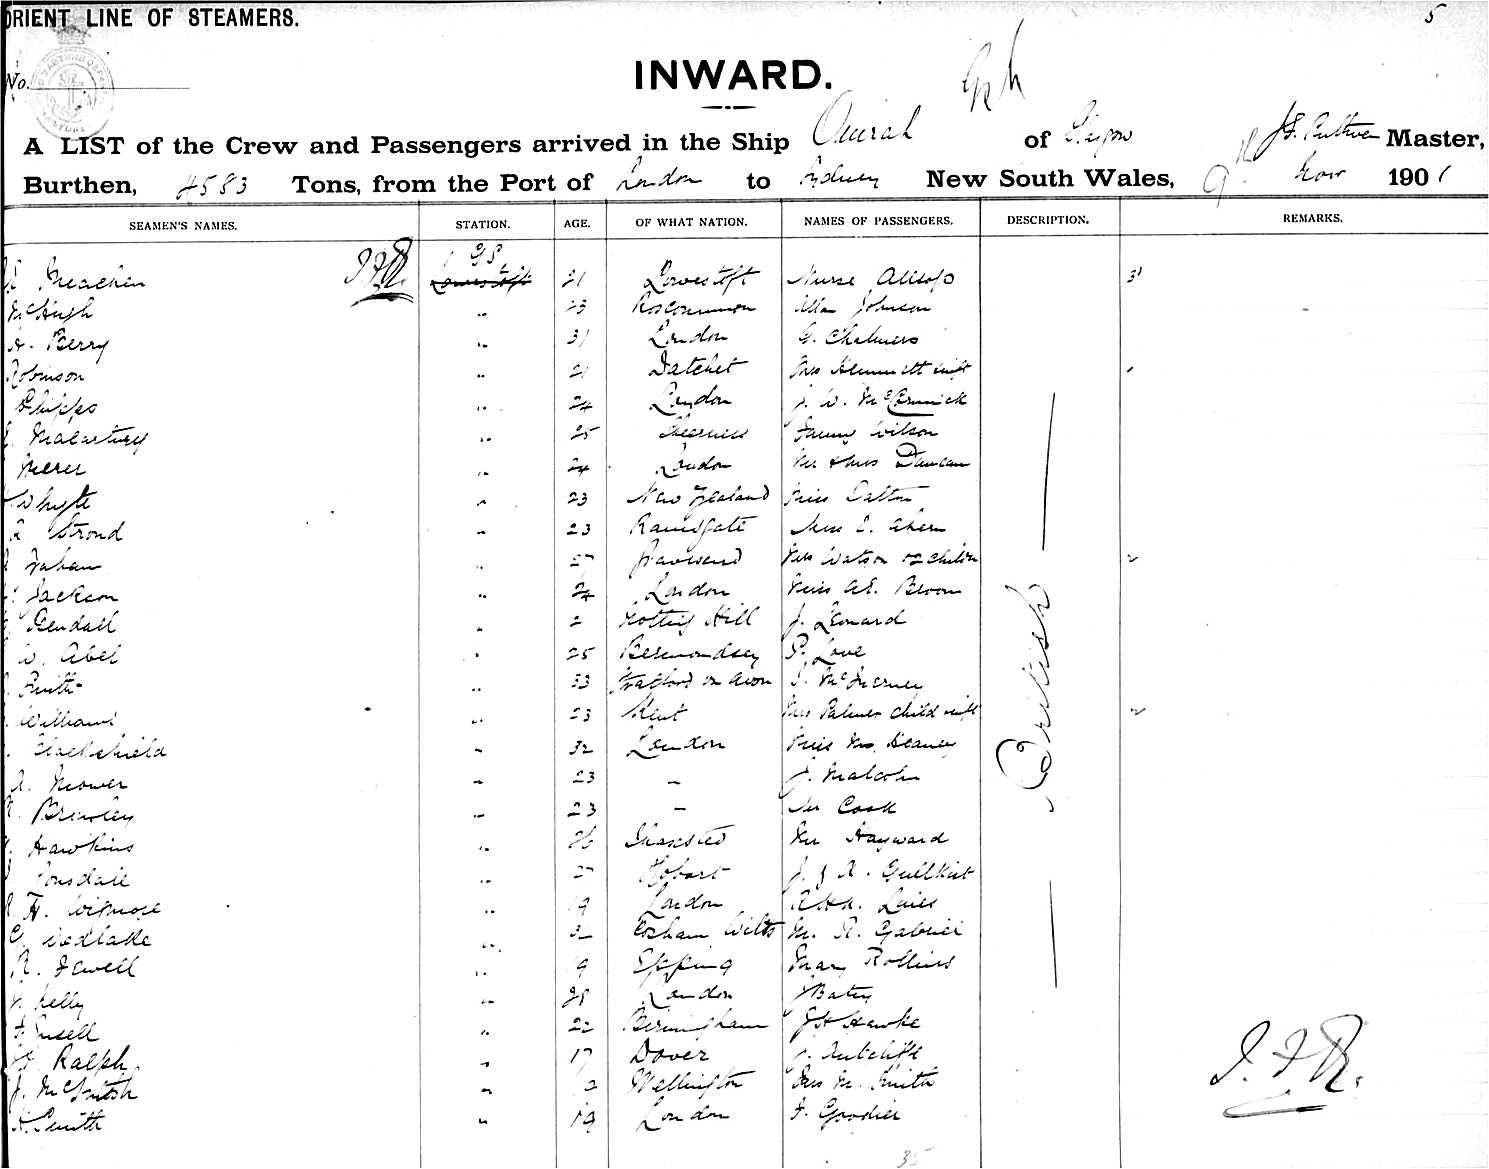 ORIENT LINE OF STEAMERS.
5
No.
INWARD.
A LIST of the Crew and Passengers arrived in the Ship Omrah of Glasgow J.F. Ruthven Master,
Burthen, 4583 Tons, from the Port of London to Sydney New South Wales, 9th Nov 1901
SEAMEN'S NAMES. STATION. AGE. OF WHAT NATION. NAMES OF PASSENGERS. DESCRIPTION. REMARKS.
Meachen J.F.R. GS Lowestoft 21 Lowestoft Nurse Allsop 3
McHugh " 23 Roscommon Allan Johnson
A. Berry " 31 London G. Chalmers
Robinson " 21 Datchet Mrs Hemmett
Phipps " 24 London J. W. McCormick
Macartney " 25 Sheerness Fanny Wilson
Mercer " 24 London Mr & Mrs Duncan
Whyte " 23 New Zealand Miss Dalton
Strond " 23 Ramsgate Miss Ahern
" 27 Gravesend Mrs Watson & 2 children
Jackson " 24 London Miss A.E. Bloom
Gendall " 2 Notting Hill J. Leonard
W. Abel " 25 Bermondsey P. Love
Smith " 33 Stratford on Avon J. McInerney
Williams " 23 Kent Mrs Palmer child
Blackshield " 32 London Miss Heaney
A. Mower " 23 - J. Malcolm
Brimley " 23 - Mr Cook
Hawkins " 26 Mr Hayward
Lonsdale " 27 Hobart J. & A.
H. Wigmore " 19 London
C. Wedlake " 32 Corsham Wilts M. A. Gabriel
R. Jewell " 19 Epping Mary Rollins
Kelly " 28 London J Batey
" 22 Birmingham J H Hawke
Ralph " 17 Dover J. Sutcliffe
J. McIntosh " 2 Wellington Mrs M. Smith
A. Smith " 19 London J. Goodier
British
J.F.R.
35